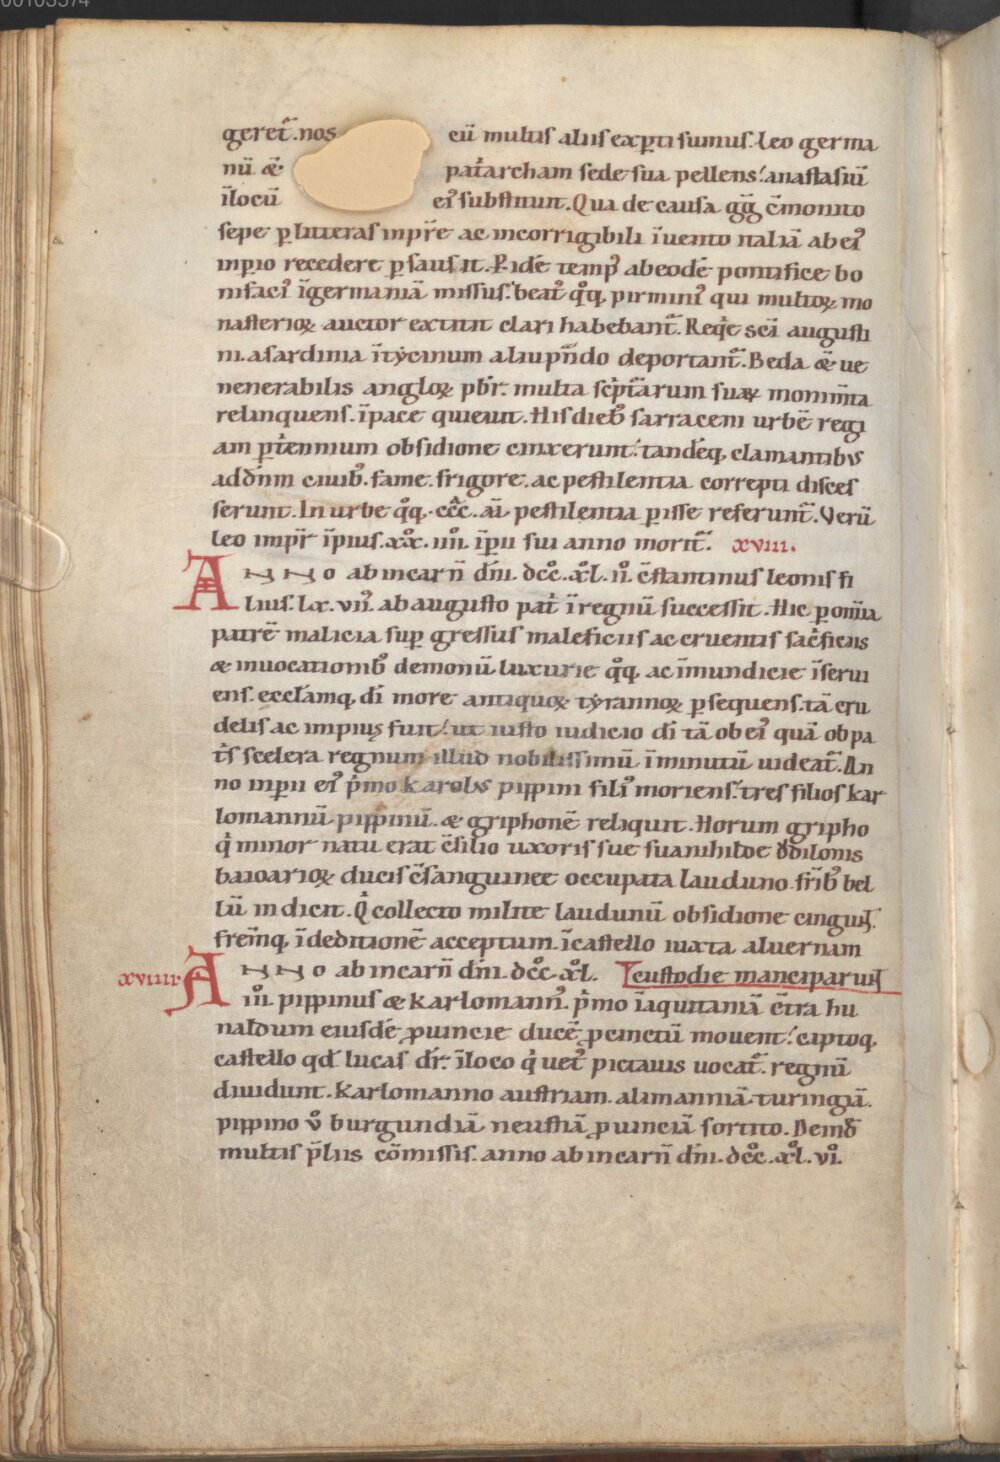 00103374
geret̃. nos eū multis aliis exꝑti sumus. Leo germa
nū & pat̉archam sede sua pellens. anastasiū
ĩlocū ei᷒ substituit. Qua de causa gg̃ c̃monito
sepe ꝑ litteras inpr̃e ac incorrigibili ĩuento italiã ab ei᷒
inperio recedere ꝑsausit. P̲ idẽ temp᷒ ab eodẽ pontifice bo
nifaci᷒ ĩgermaniã missus. beat᷒ qͦq, pirmini᷒ qui multoꝝ mo
nasterioꝝ auctor extitit clari habebant̃. Reqͥe sc̄i augusti
ni. a sardinia ĩtẏcinum a liupñdo deportant̃. Beda & ue
nenerabilis angloꝝ pbr̃. multa scͥpt̃arum suaꝝ monim̃ta
relinquens. ĩpace quieuit. His dieb᷒ sarraceni urbẽ regi
am ꝑtennium obsidione cinxerunt. tandẽq, clamantibus
addñm ciuib᷒. fame. frigore. ac pestilentia correpti disces
serunt. In urbe qͦq, .ccc̃. ai᷒ pestilentia ꝑisse referunt̃. Verũ
leo impr̃ ĩpius. xͦxͦ. iiiiͦ. ĩperii sui anno morit̃. xviii.
ANNO ab incarñ dñi. dcͦcͦ. xͦl. iiͦ. c̃stantinus leonis fi
lius. lx. vii᷒. ab augusto pat̉ ĩregnũ successit. Hic ꝑ om̃ia
patrẽ malicia suꝑ gressus maleficiis ac cruentis sacͥficiis
& inuocationib᷒ demonũ luxurie qͦq, ac ĩmundicie ĩserui
ens. eccl̃amq, di᷒ more antiquoꝝ tẏrannoꝝ ꝑsequens. tã cru
delis ac impius fuit. ut iusto iudicio di᷒ tã ob ei᷒ quã ob pa
t̉s scelera regnum illud nobilissimũ ĩminutũ uideat̃. An
no inperii ei᷒ pͥmo karolus pippini fili᷒ moriens. tres filios kar
lomannũ pippinũ. & griphonẽ reliquit. Horum gripho
qͥ minor natu erat c̃silio uxoris sue suanihilde odilonis
baioarioꝝ ducis c̃sanguinee occupata lauduno. fr̃ib᷒ bel
lũ indicit. Qͥ collecto milite laudunũ obsidione cingunt.
frem̃q, ĩdeditionẽ acceptum. ĩcastello iuxta aluernam
xviiii. ANNO ab incarñ dñi. dcͦcͦ. xͦl. custodie manciparunt
iiiͦ. pippinus & karlomann᷒. pͥmo ĩaquitaniã c̃tra hu
naldum eiusdẽ ꝓuincie ducẽ ꝓcinctũ mouent. captoq,
castello qd̃ lucas dr̃. ĩloco qͥ uet᷒ pictauis uocat̃. regnũ
diuidunt. Karlomanno austriam. alimanniã. turingiã.
pippino v̊ burgundiã neustiã ꝓuinciã sortito. Deind̃
multis p̃liis cõmissis. anno ab incarñ dñi. dcͦcͦ. xͦl. viͦ.